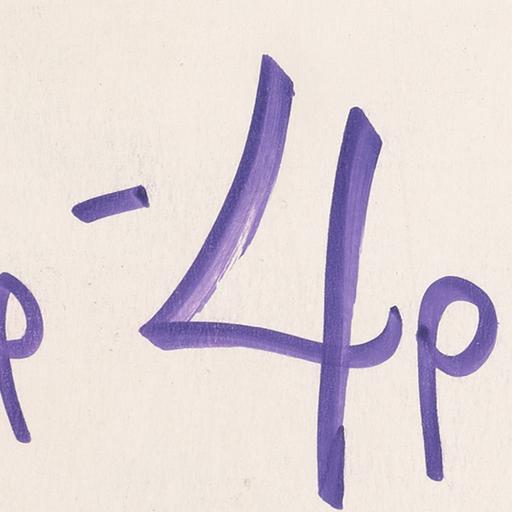 p - 4p